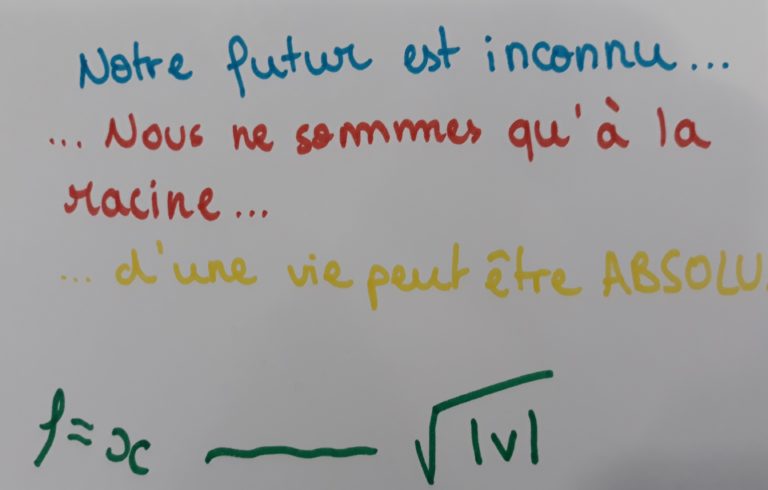 Notre futur est inconnu...
... Nous ne sommes qu'à la
racine...
... d'une vie peut être ABSOLU.
f = x —— √|v|